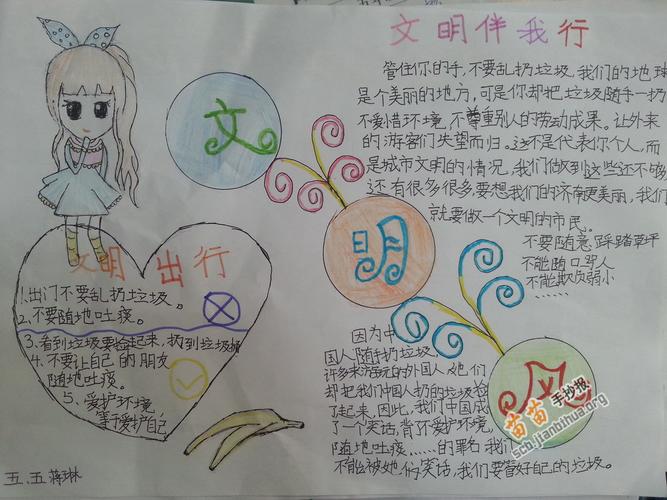 文明伴我行
管住你的手,不要乱扔垃圾,我们的地球
是个美丽的地方,可是你却把垃圾随手一扔
不爱惜环境,不尊重别人的劳动成果。让外来
的游客们失望而归。这不是代表你个人,而
是城市文明的情况,我们做到这些还不够
还有很多很多要想我们的济南更美丽,我们
就要做一个文明的市民。
不要随意踩踏草坪
不能随口骂人
不能欺负弱小
……
文
明
风
文明出行
1.出门不要乱扔垃圾。
2.不要随地吐痰。
3.看到垃圾要捡起来,扔到垃圾桶
4.不要让自己的朋友
随地吐痰。
5、爱护环境
等于爱护自己
因为中
国人随手扔垃圾,
许多来济南玩的外国人,她们
却把我们中国人扔的垃圾捡
了起来,因此,我们中国成
了一个笑话,背坏爱护环境,
随地吐痰……的罪名,我们
不能被她们笑话,我们要替好自己的垃圾。
五.五 蒋琳
苗苗手抄报
scb.jianbihua.org